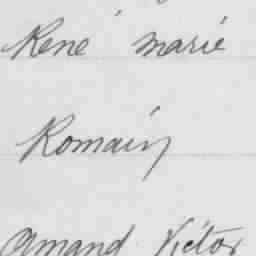 René marie
Romain
Amand Victor